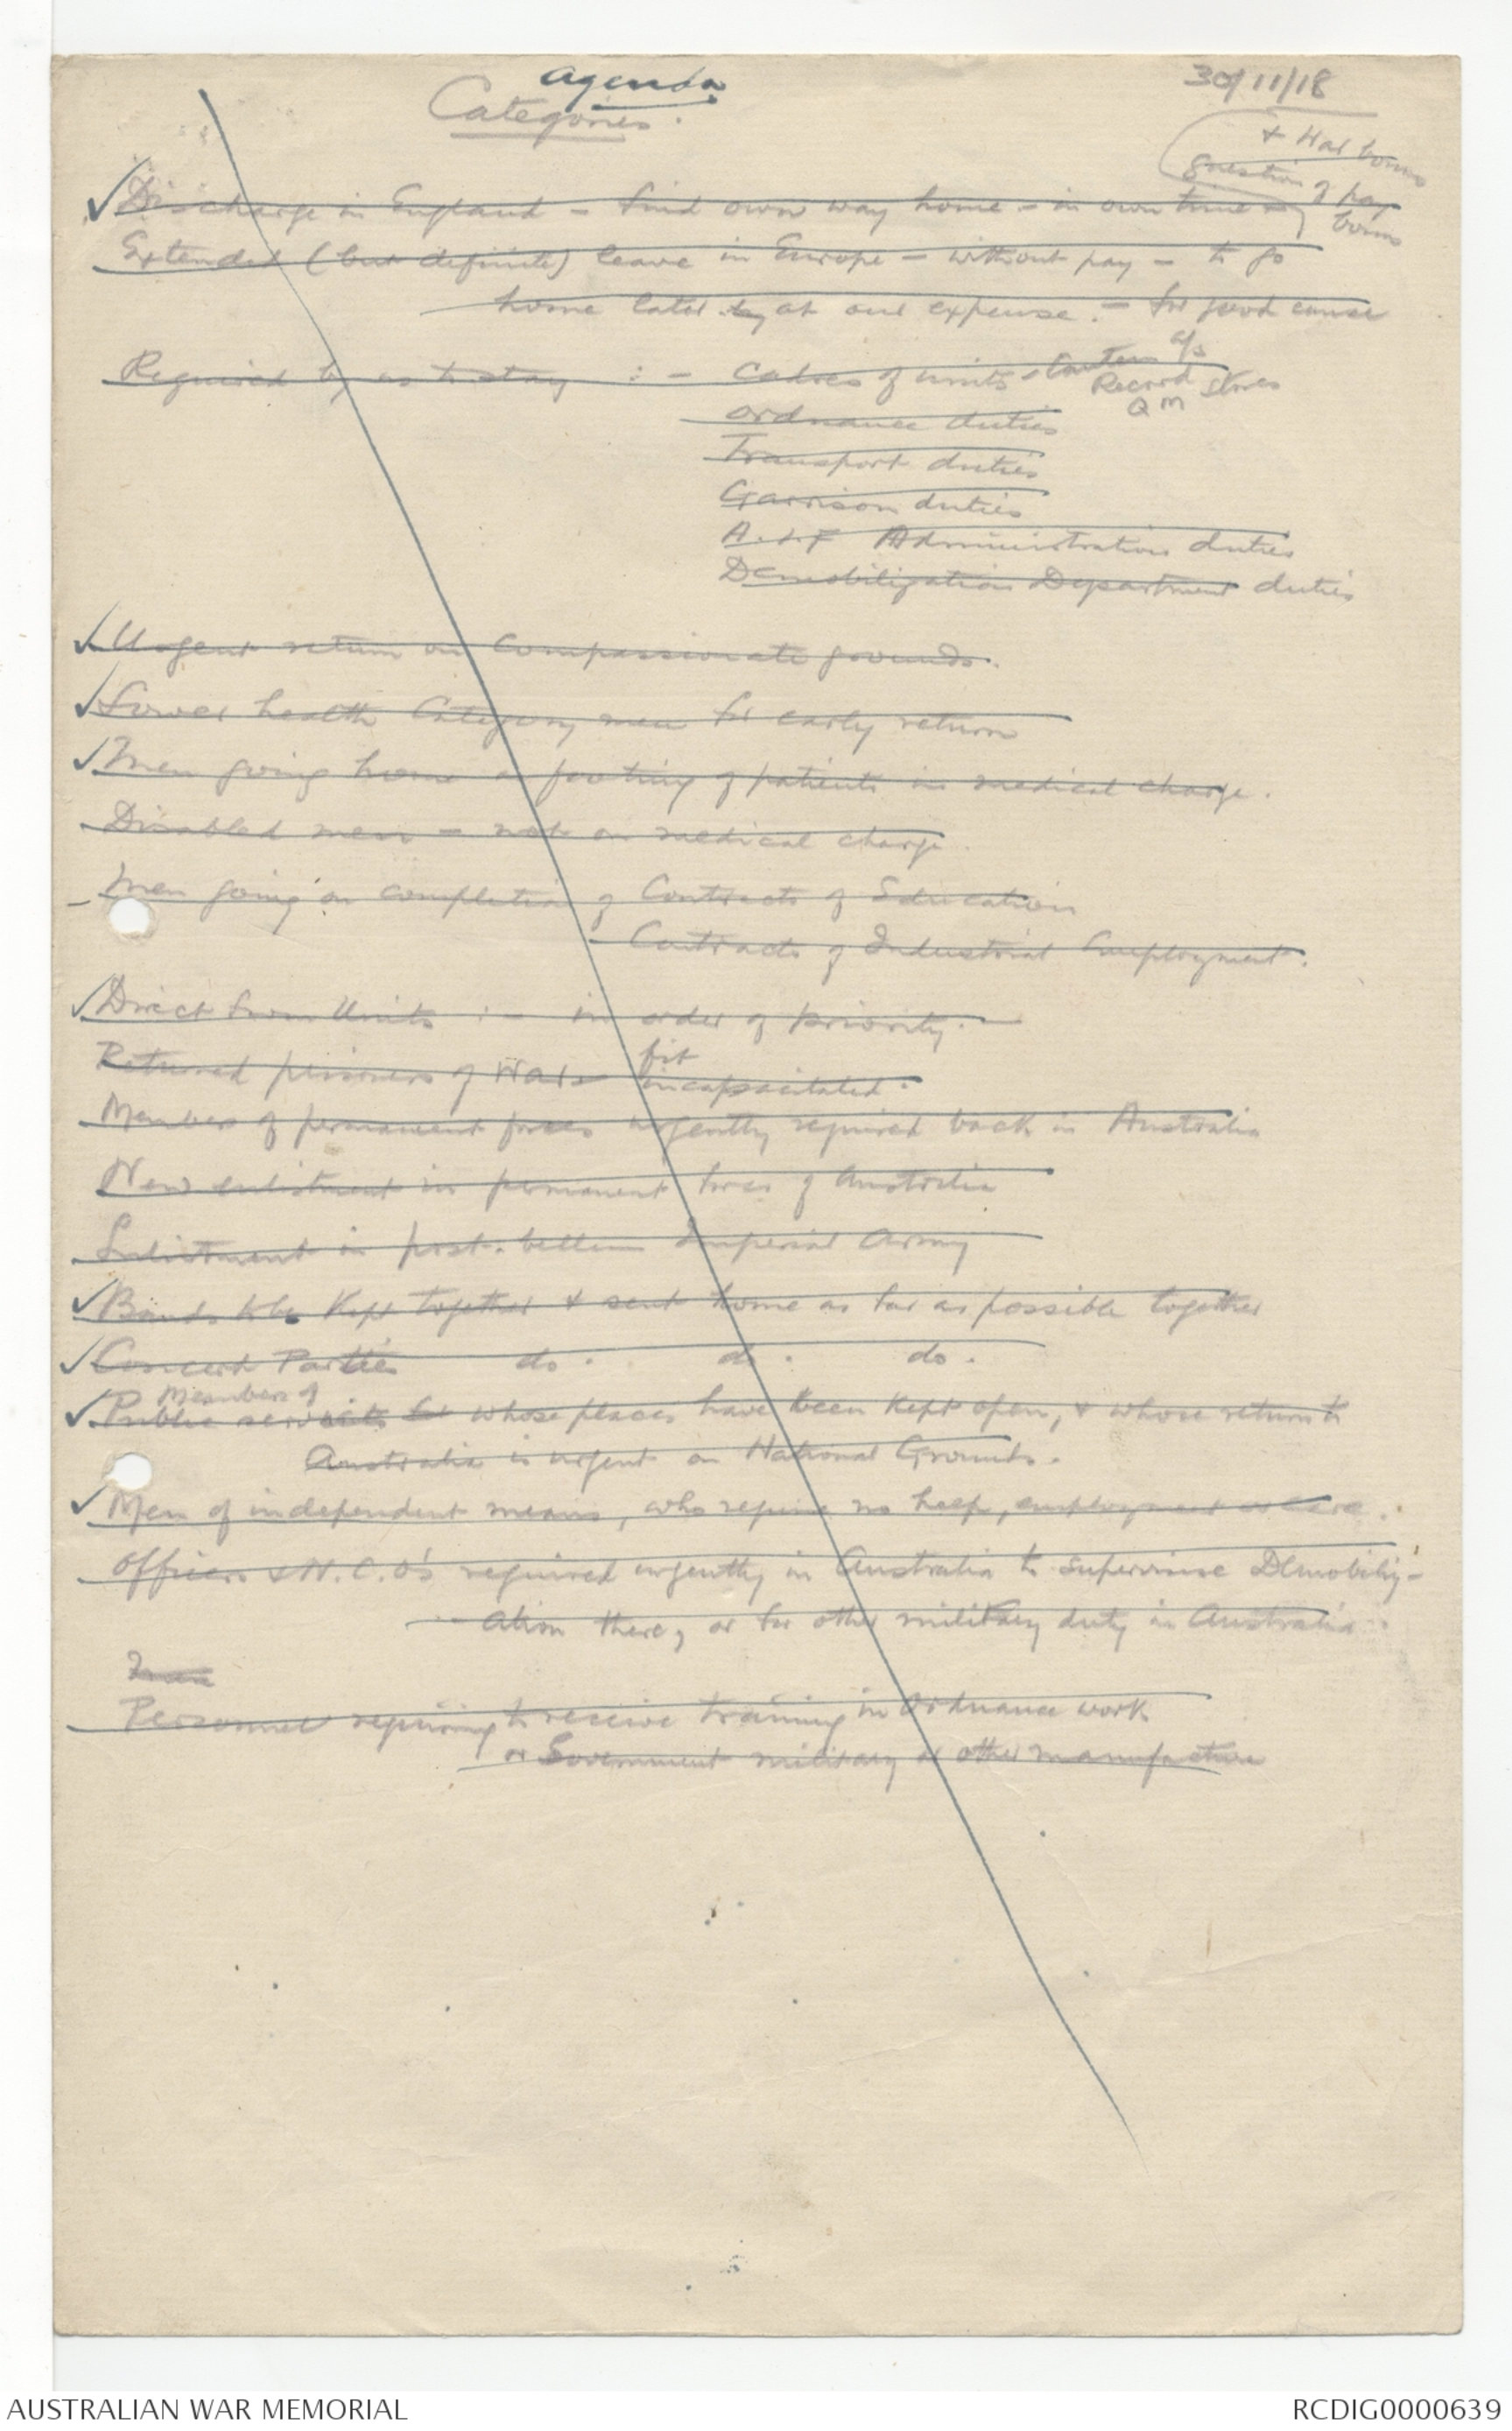 Agenda
Categories.
30/11/18
question of pay
✓Discharge in England - find own way home - in own time
Extended (but definite) leave in Europe - without pay - to go
home later by at our expense. - for good cause
Required by us to stay :- Cadres of units
Record
QM
Stores
Ordnance duties
Transport duties
Garrison duties
A.I.F Administration duties
Demobilization Department duties
✓Urgent return on Compassionate grounds.
✓Lower health Category men for early return
✓Men going home on footing of patients in medical charge.
Disabled men - not on medical charge.
- Men going on completion of Contracts of Education
Contracts of Industrial Employment.
✓Direct from Units :- in order of priority.
fit
Returned prisoners of War incapacitated.
Members of permanent forces urgently required back in Australia
New enlistment in permanent forces of Australia
Enlistment in post-bellum Imperial Army
✓Bands to be Kept together & sent home as far as possible together
✓Concert Parties do. do. do.
Members of
✓Public services whose places have been kept open, & whose return to
Australia is urgent on National Grounds.
✓Men of independent means, who require no help, employment or care.
Officers & N.C.O's required urgently in Australia to supervise Demobiliz-
ation there, or for other military duty in Australia.
Personnel requiring to receive training in Ordnance work
or Government military or other manufacture
AUSTRALIAN WAR MEMORIAL
RCDIG0000639